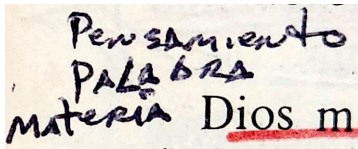 Pensamiento
PALABRA
Materia Dios m